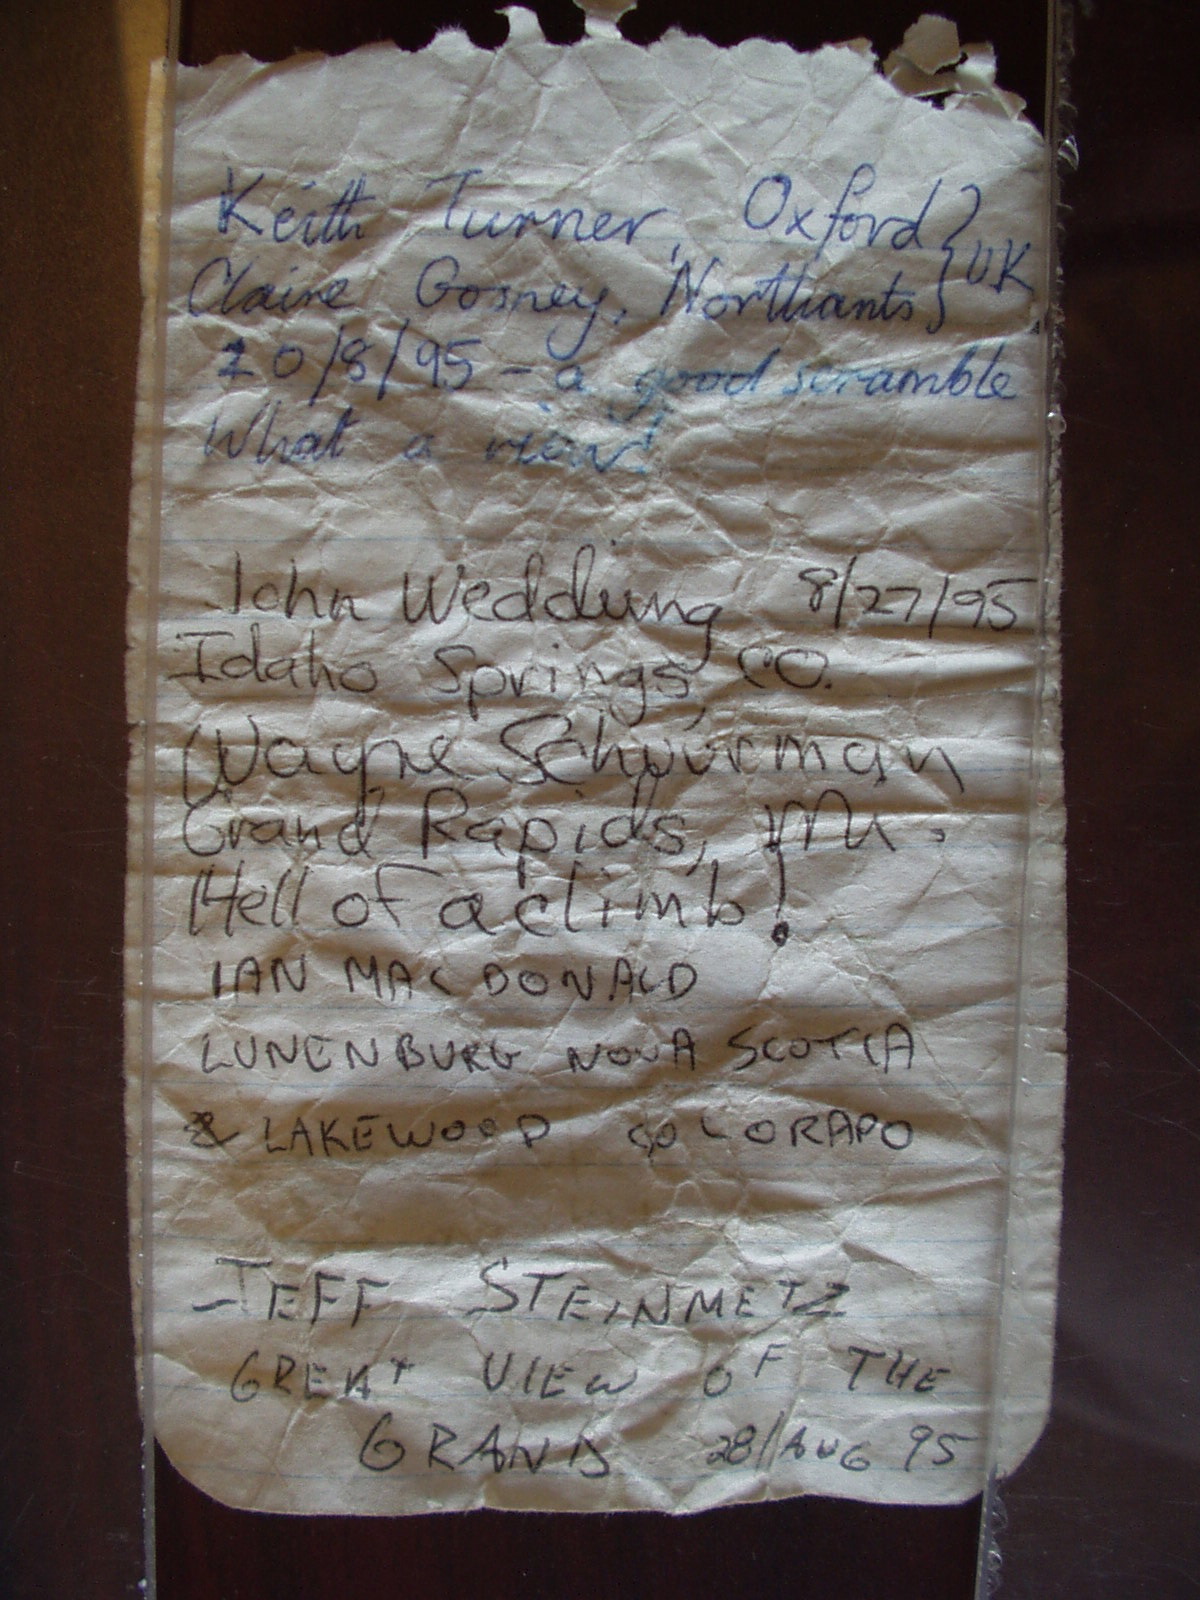 Keith Turner, Oxford } UK
Claire Gosney, Northants }
20/8/95 - a good scramble
What a view!
John Wedding 8/27/95
Idaho Springs, CO.
Wayne Schuurman
Grand Rapids, Mi.
Hell of a climb!
IAN MACDONALD
LUNENBURG NOVA SCOTIA
& LAKEWOOD COLORADO
JEFF STEINMETZ
GREAT VIEW OF THE
GRAND 28/AUG 95